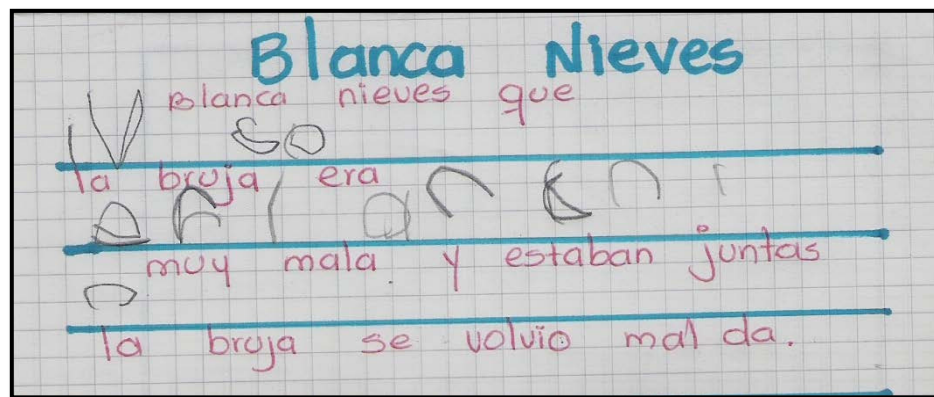 Blanca Nieves
Blanca nieves que
la bruja era
muy mala. y estaban juntas
la bruja se volvio mal da.